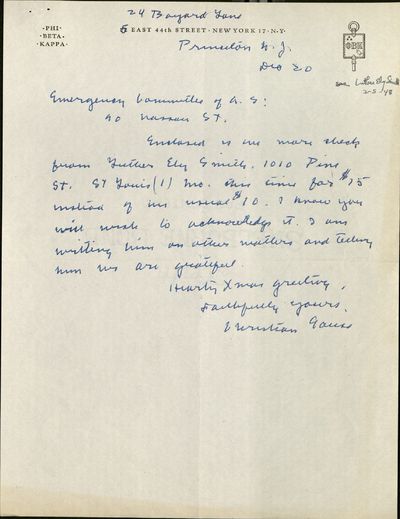 24 Bayard Lane
·PHI·
·BETA·
·KAPPA·
5 EAST 44th STREET · NEW YORK 17 · N·Y·
ΦΒΚ
Princeton N.J.
Dec 20
Luther Ely Smith
2-5-48
Emergency Committee of A. S:
90 Nassau St.
Enclosed is one more check
from Luther Ely Smith, 1010 Pine
St. St Louis (1) Mo. this time for $15
instead of his usual $10. I know you
will wish to acknowledge it. I am
writing him on other matters and telling
him we are grateful.
Hearty Xmas greeting,
Faithfully yours,
Christian Gauss